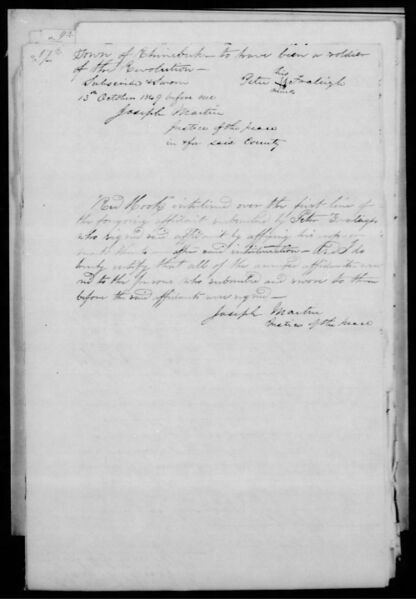 Town of Rhinebeck to have been a soldier
of the Revolution —
Subscribed & Sworn
13th October 1849 before me
Peter his X mark Fraleigh
Joseph Martin
Justice of the peace
in & for said County
"Red Hook" interlined over the first line of
the foregoing affidavit subscribed by Peter Fraleigh
who signed said affidavit by affixing his
mark thereto — after said interlineation — And I do
hereby certify that all of the affidavits were
read to the persons who subscribed and swore to them
before the said affidavits were signed —
Joseph Martin
Justice of the peace